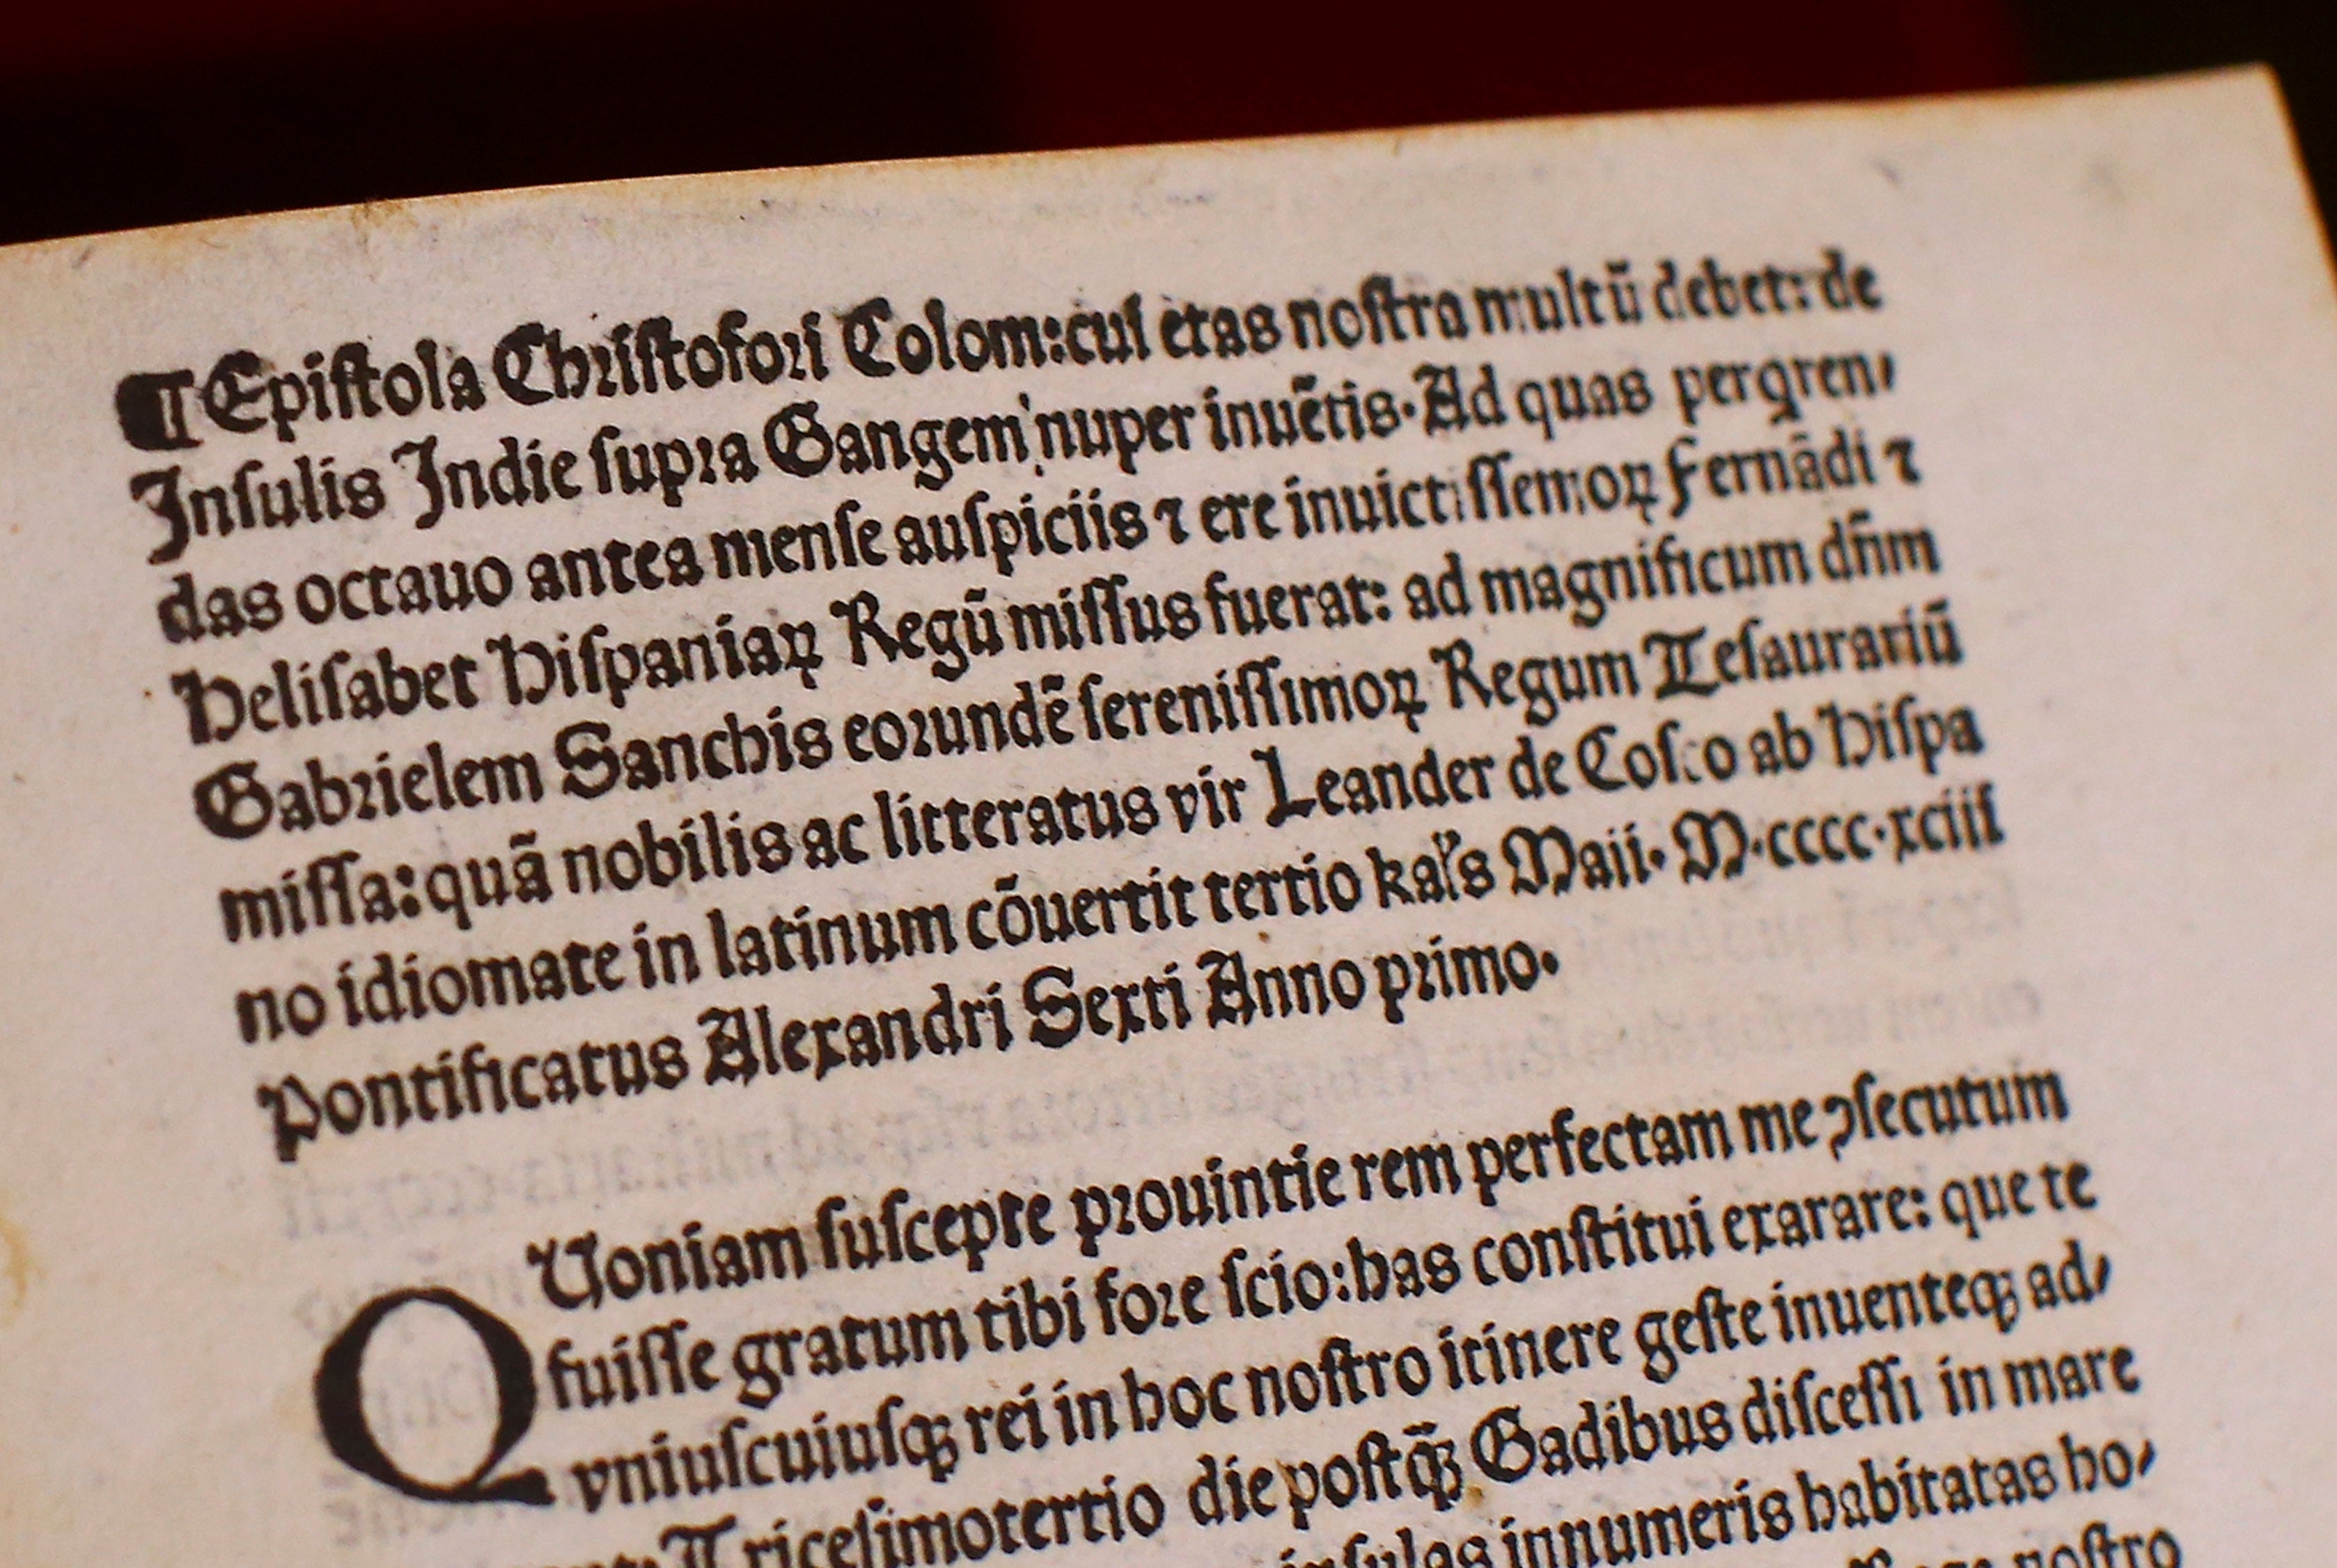 ¶ Epiſtola Chꝛiſtofoꝛi Colom: cui etas noſtra multũ debet: de
Inſulis Indie ſupꝛa Gangem nuper inuẽtis. Ad quas perqren⸗
das octauo antea menſe auſpiciis ⁊ ere inuictiſſemoꝝ Fernãdi ⁊
Heliſabet Hiſpaniaꝝ Regũ miſſus fuerat: ad magnificum dñm
Gabꝛielem Sanchis eoꝛundẽ ſereniſſimoꝝ Regum Teſaurariũ
miſſa: quã nobilis ac litteratus vir Leander de Coſco ab Hiſpa
no idiomate in latinum cõuertit tertio kaľs Maii. M.cccc.xciii
Pontificatus Alexandri Sexti Anno pꝛimo.
QUoniam ſuſcepte pꝛouintie rem perfectam me ꝯſecutum
fuiſſe gratum tibi foꝛe ſcio: has conſtitui exarare: que te
vniuſcuiuſqꝫ rei in hoc noſtro itinere geſte inuenteqꝫ ad⸗
Triceſimotertio die poſtq̃ꝫ Gadibus diſceſſi in mare
inſulas innumeris habitatas ho⸗
noſtro